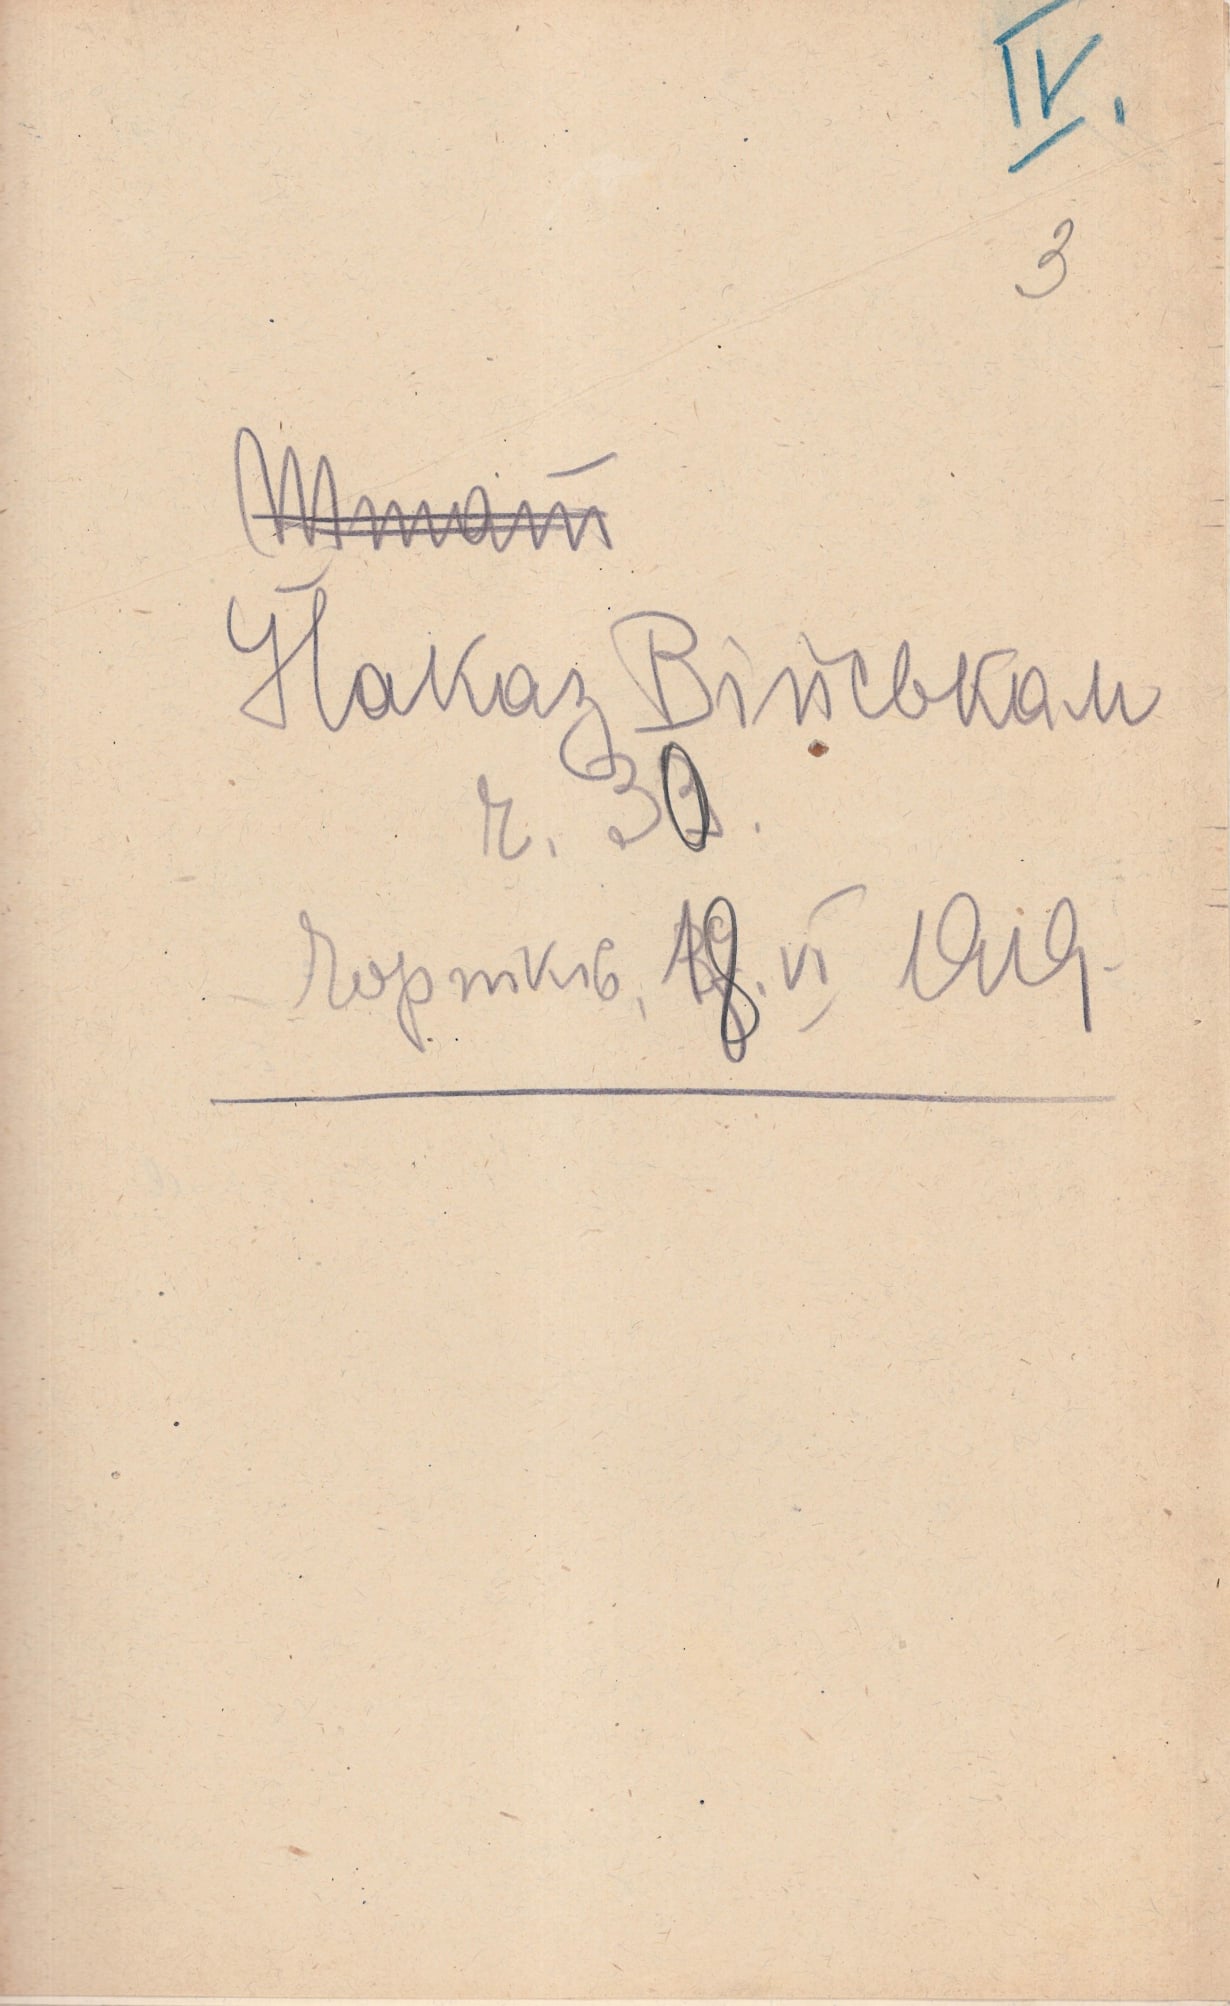 IV.
3
Штат
Наказ Військам
ч. 30.
Чортків, 18. VI 1919.